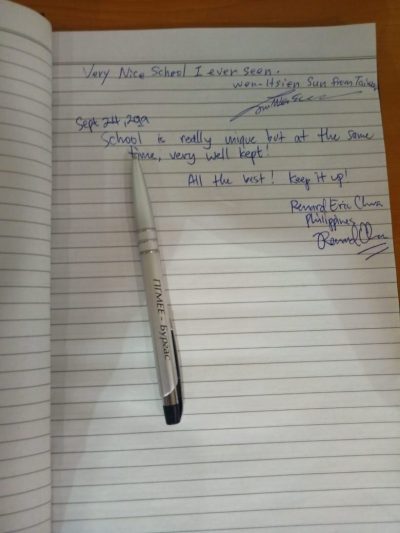 Very Nice School I ever seen.
Wen-Hsien Sun from Taiwan
Sept 24, 2019
School is really unique but at the same
time, very well kept!
All the best! Keep it up!
Renard Eric Chua
Philippines
ПГМЕЕ - Бургас